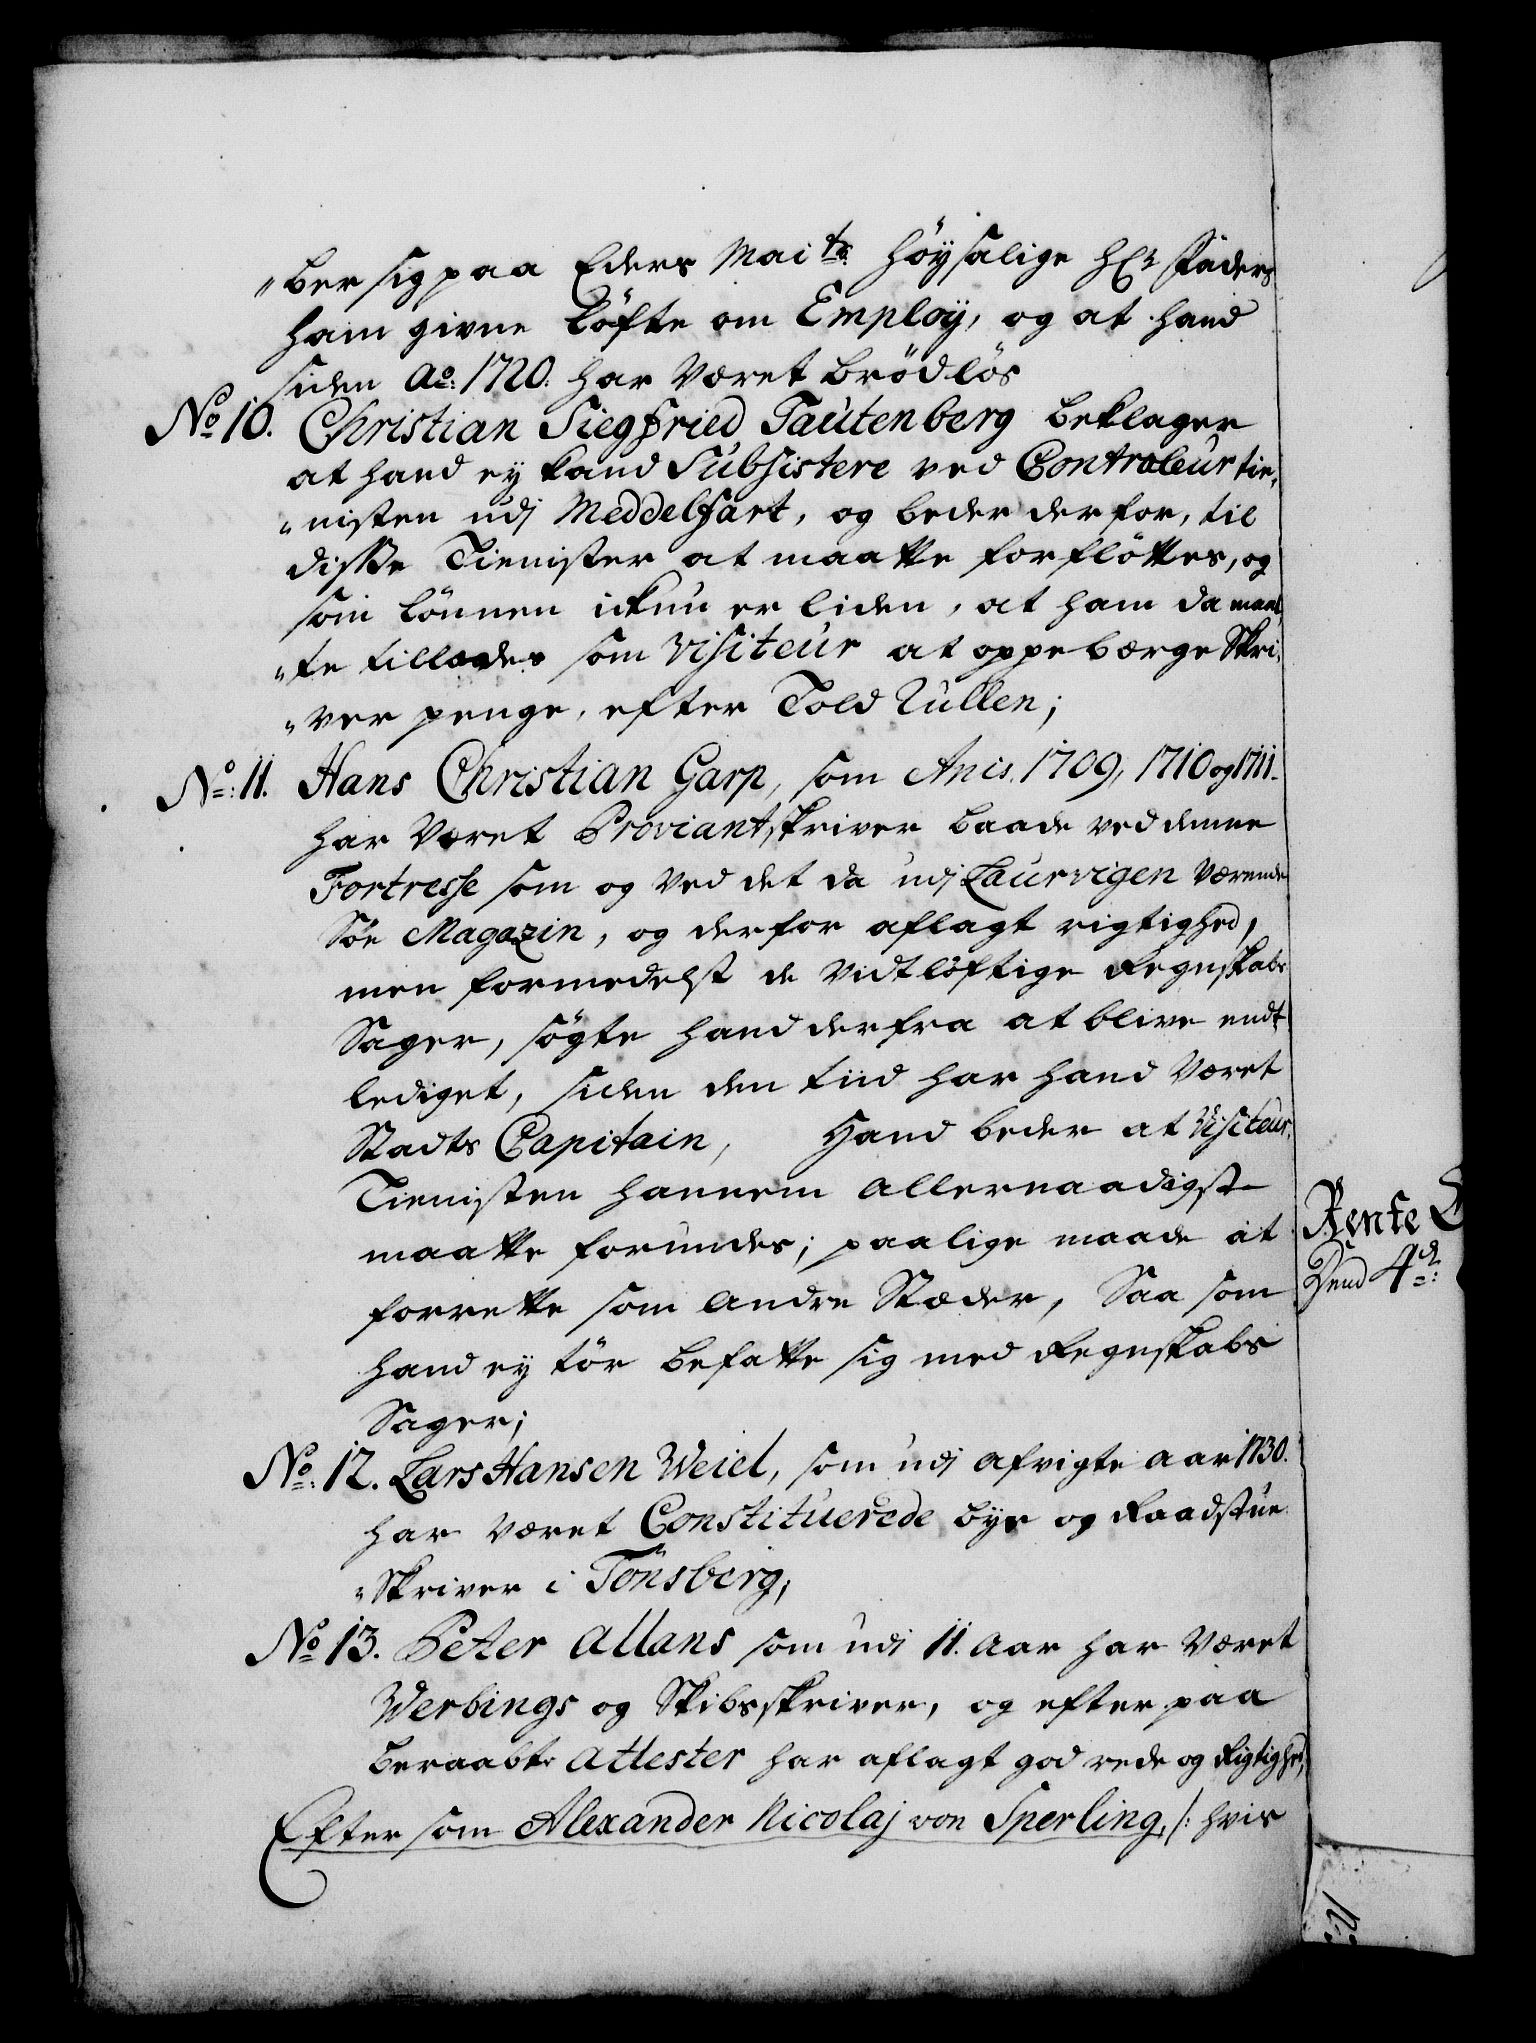 "ber sig paa Eders Maits: Höysalige Hr Faders
ham givne Löfte om Employ, og at hand
siden Ao: 1720. har været brödlös
No 10. Christian Siegfried Tautenberg beklager
at hand ey kand Subsistere ved Controleur tie„
„nisten udj Meddelfart, og beder derfor, til
disse Tienister at maatte forflöttes, og
som Lönnen ickun er liden, at ham da maat„
„te tillades som Visiteur at oppebærge Skri„
„ver penge, efter Told Rullen;
No: 11. Hans Christian Garp, som Anis. 1709, 1710 og 1711.
har været Proviantskriver baade ved denne
Fortresse som og ved det da udj Laurvigen værende
Söe Magazin, og derfor aflagt rigtighed,
men formedelst de vidtlöftige Regnskabs
Sager, sögte hand derfra at blive endt
lediget, siden den tiid har hand været
Stadts Capitain, Hand beder at Visiteur
Tienisten hannem allernaadigst
maatte forundes; paa lige maade at
forrette som andre Stæder, Saa som
hand ey tör befatte sig med Regnskabs
Sager;
No: 12. Lars Hansen Weiel, som udj afvigte aar 1730.
har været Constituerede bye og Raadstue
„Skriver i Tönsberg,
No 13. Peter Allans som udj 11. Aar har været
Werbings og Skibsskriver, og efter paa
beraabte Attester har aflagt god rede og Rigtighed,
Efter som Alexander Nicolaj von Sperling, /: hvis
Rente
Dend 4de: